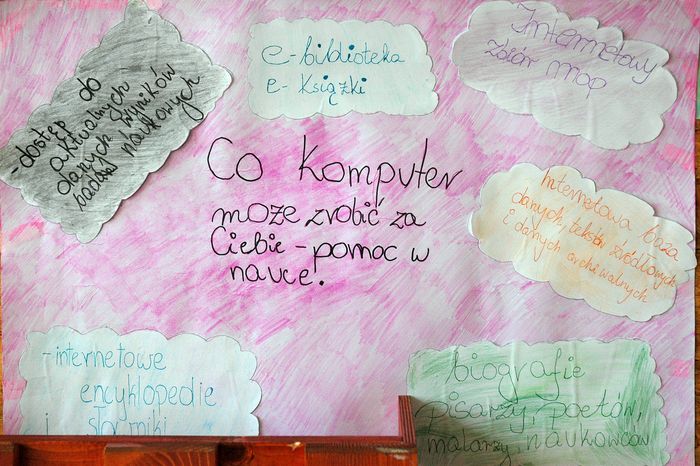 - dostęp do
aktualnych
danych wyników
badań naukowych
e-biblioteka
e-książki
Internetowy
zbiór map
Co komputer
może zrobić za
Ciebie - pomoc w
nauce!
Internetowa baza
danych, tekstów źródłowych
i danych archiwalnych
- internetowe
encyklopedie
i słowniki
biografie
pisarzy, poetów,
malarzy, naukowców